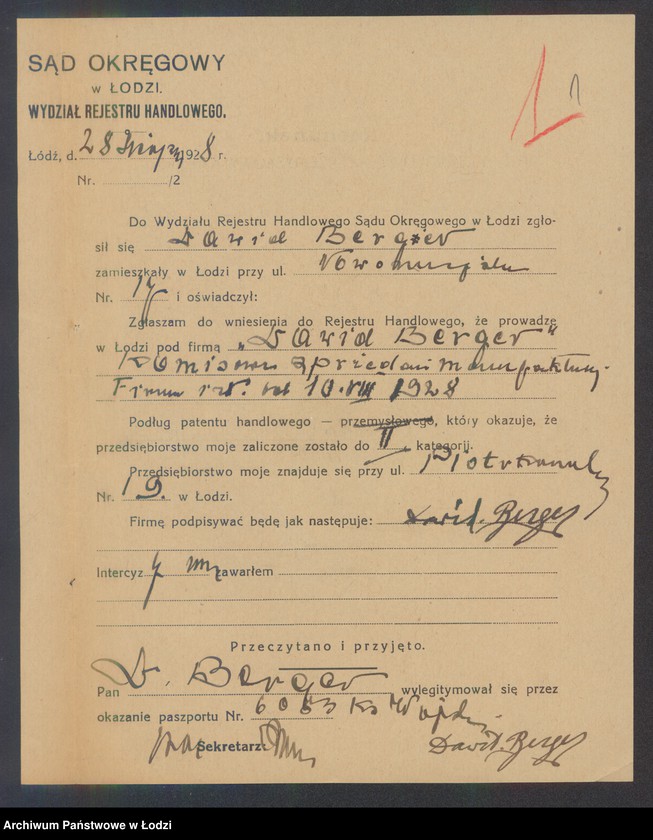 SĄD OKRĘGOWY
W ŁODZI.
WYDZIAŁ REJESTRU HANDLOWEGO.
1 1
Łódź, d. 28 sierpnia 1928 r.
Nr. /2
Do Wydziału Rejestru Handlowego Sądu Okręgowego w Łodzi zgło-
sił się Dawid Berger
zamieszkały w Łodzi przy ul.
Nr. i oświadczył:
Zgłaszam do wniesienia do Rejestru Handlowego, że prowadzę
w Łodzi pod firmą „Dawid Berger"
Komisowa sprzedaż manufaktury.
Firma istn. od 10.VIII 1928
Podług patentu handlowego — przemysłowego, który okazuje, że
przedsiębiorstwo moje zaliczone zostało do II kategorji.
Przedsiębiorstwo moje znajduje się przy ul. Piotrkowskiej
Nr. 19. w Łodzi.
Firmę podpisywać będę jak następuje: Dawid. Berger
Intercyzy nie zawarłem
Przeczytano i przyjęto.
Pan D. Berger wylegitymował się przez
okazanie paszportu Nr. 6053
Sekretarz: Dawid. Berger
Archiwum Państwowe w Łodzi